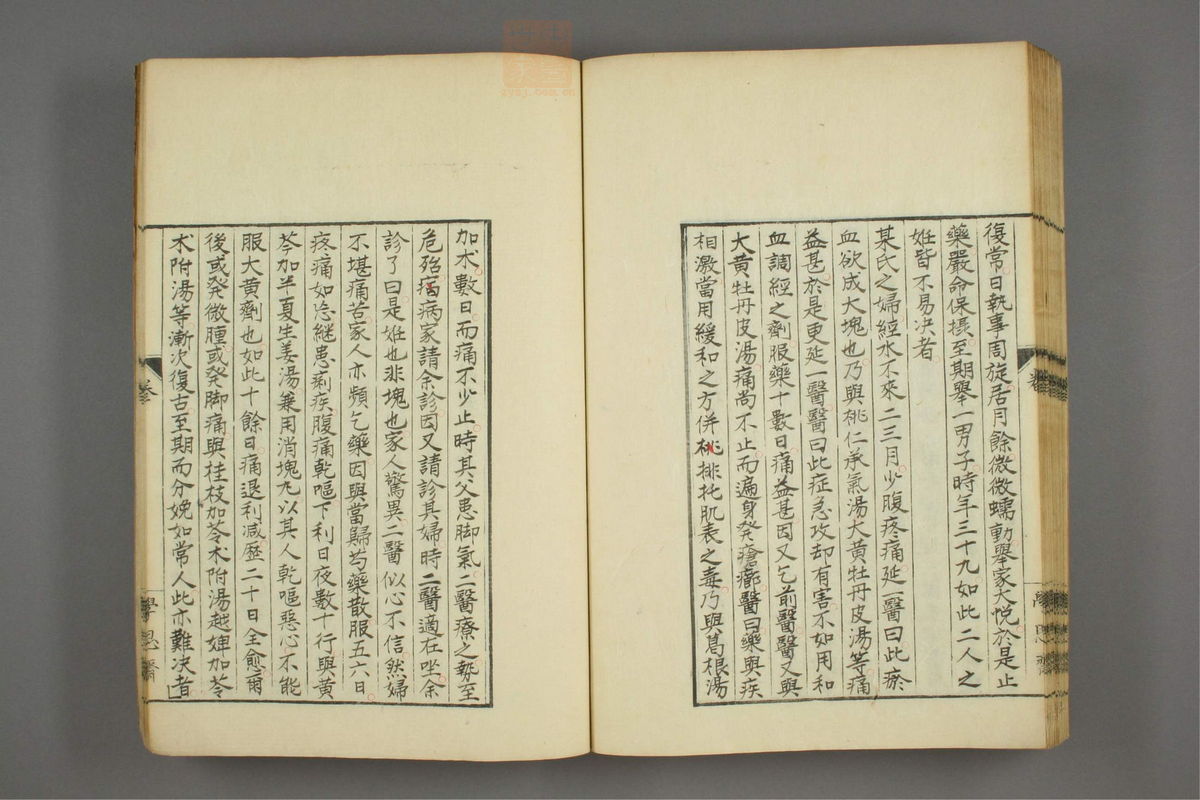 復常日執事周旋居月餘微微蠕動舉家大悅於是止
藥嚴命保攝至期舉一男子時年三十九如此二人之
妊皆不易决者
某氏之婦經水不來二三月少腹疼痛延一醫曰此瘀
血欲成大塊也乃與桃仁承氣湯大黃牡丹皮湯等痛
益甚於是更延一醫醫曰此症急攻却有害不如用和
血調經之劑服藥十數日痛益甚因又乞前醫醫又與
大黃牡丹皮湯痛尚不止而遍身発瘡癤醫曰藥與疾
相激當用緩和之方併桃排托肌表之毒乃與葛根湯
加朮數日而痛不少止時其父患脚氣二醫療之勢至
危殆病病家請余診因又請診其婦時二醫適在坐余
診了曰是妊也非塊也家人驚異二醫似心不信然婦
不堪痛苦家人亦頻乞藥因與當歸芍藥散服五六日
疼痛如忘継患痢疾腹痛乾嘔下利日夜數十行與黃
芩加半夏生姜湯兼用消塊丸以其人乾嘔惡心不能
服大黃劑也如此十餘日痛退利減歷二十日全愈爾
後或発微腫或発脚痛與桂枝加苓朮附湯越婢加苓
朮附湯等漸次復古至期而分娩如常人此亦難决者
卷
學思齋